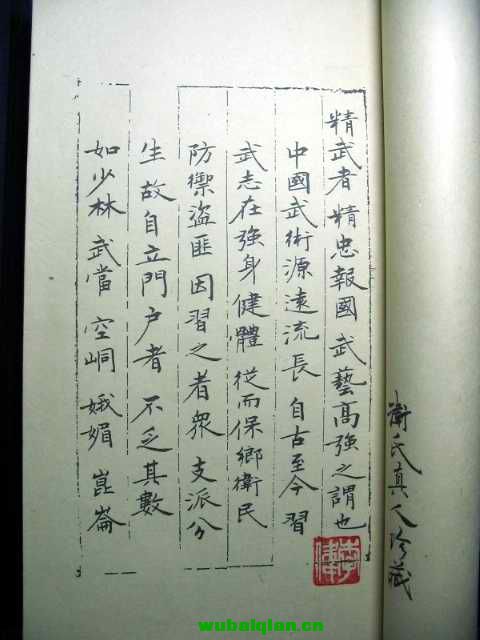 精武者 精忠報國 武藝高強之謂也
中國武術源遠流長 自古至今 習
武志在強身健體 從而保鄉衛民
防禦盜匪 因習之者眾 支派分
生 故自立門户者 不乏其數
如少林 武當 空峒 娥媚 崑崙
衛氏真人珍藏
wubaiqian.cn